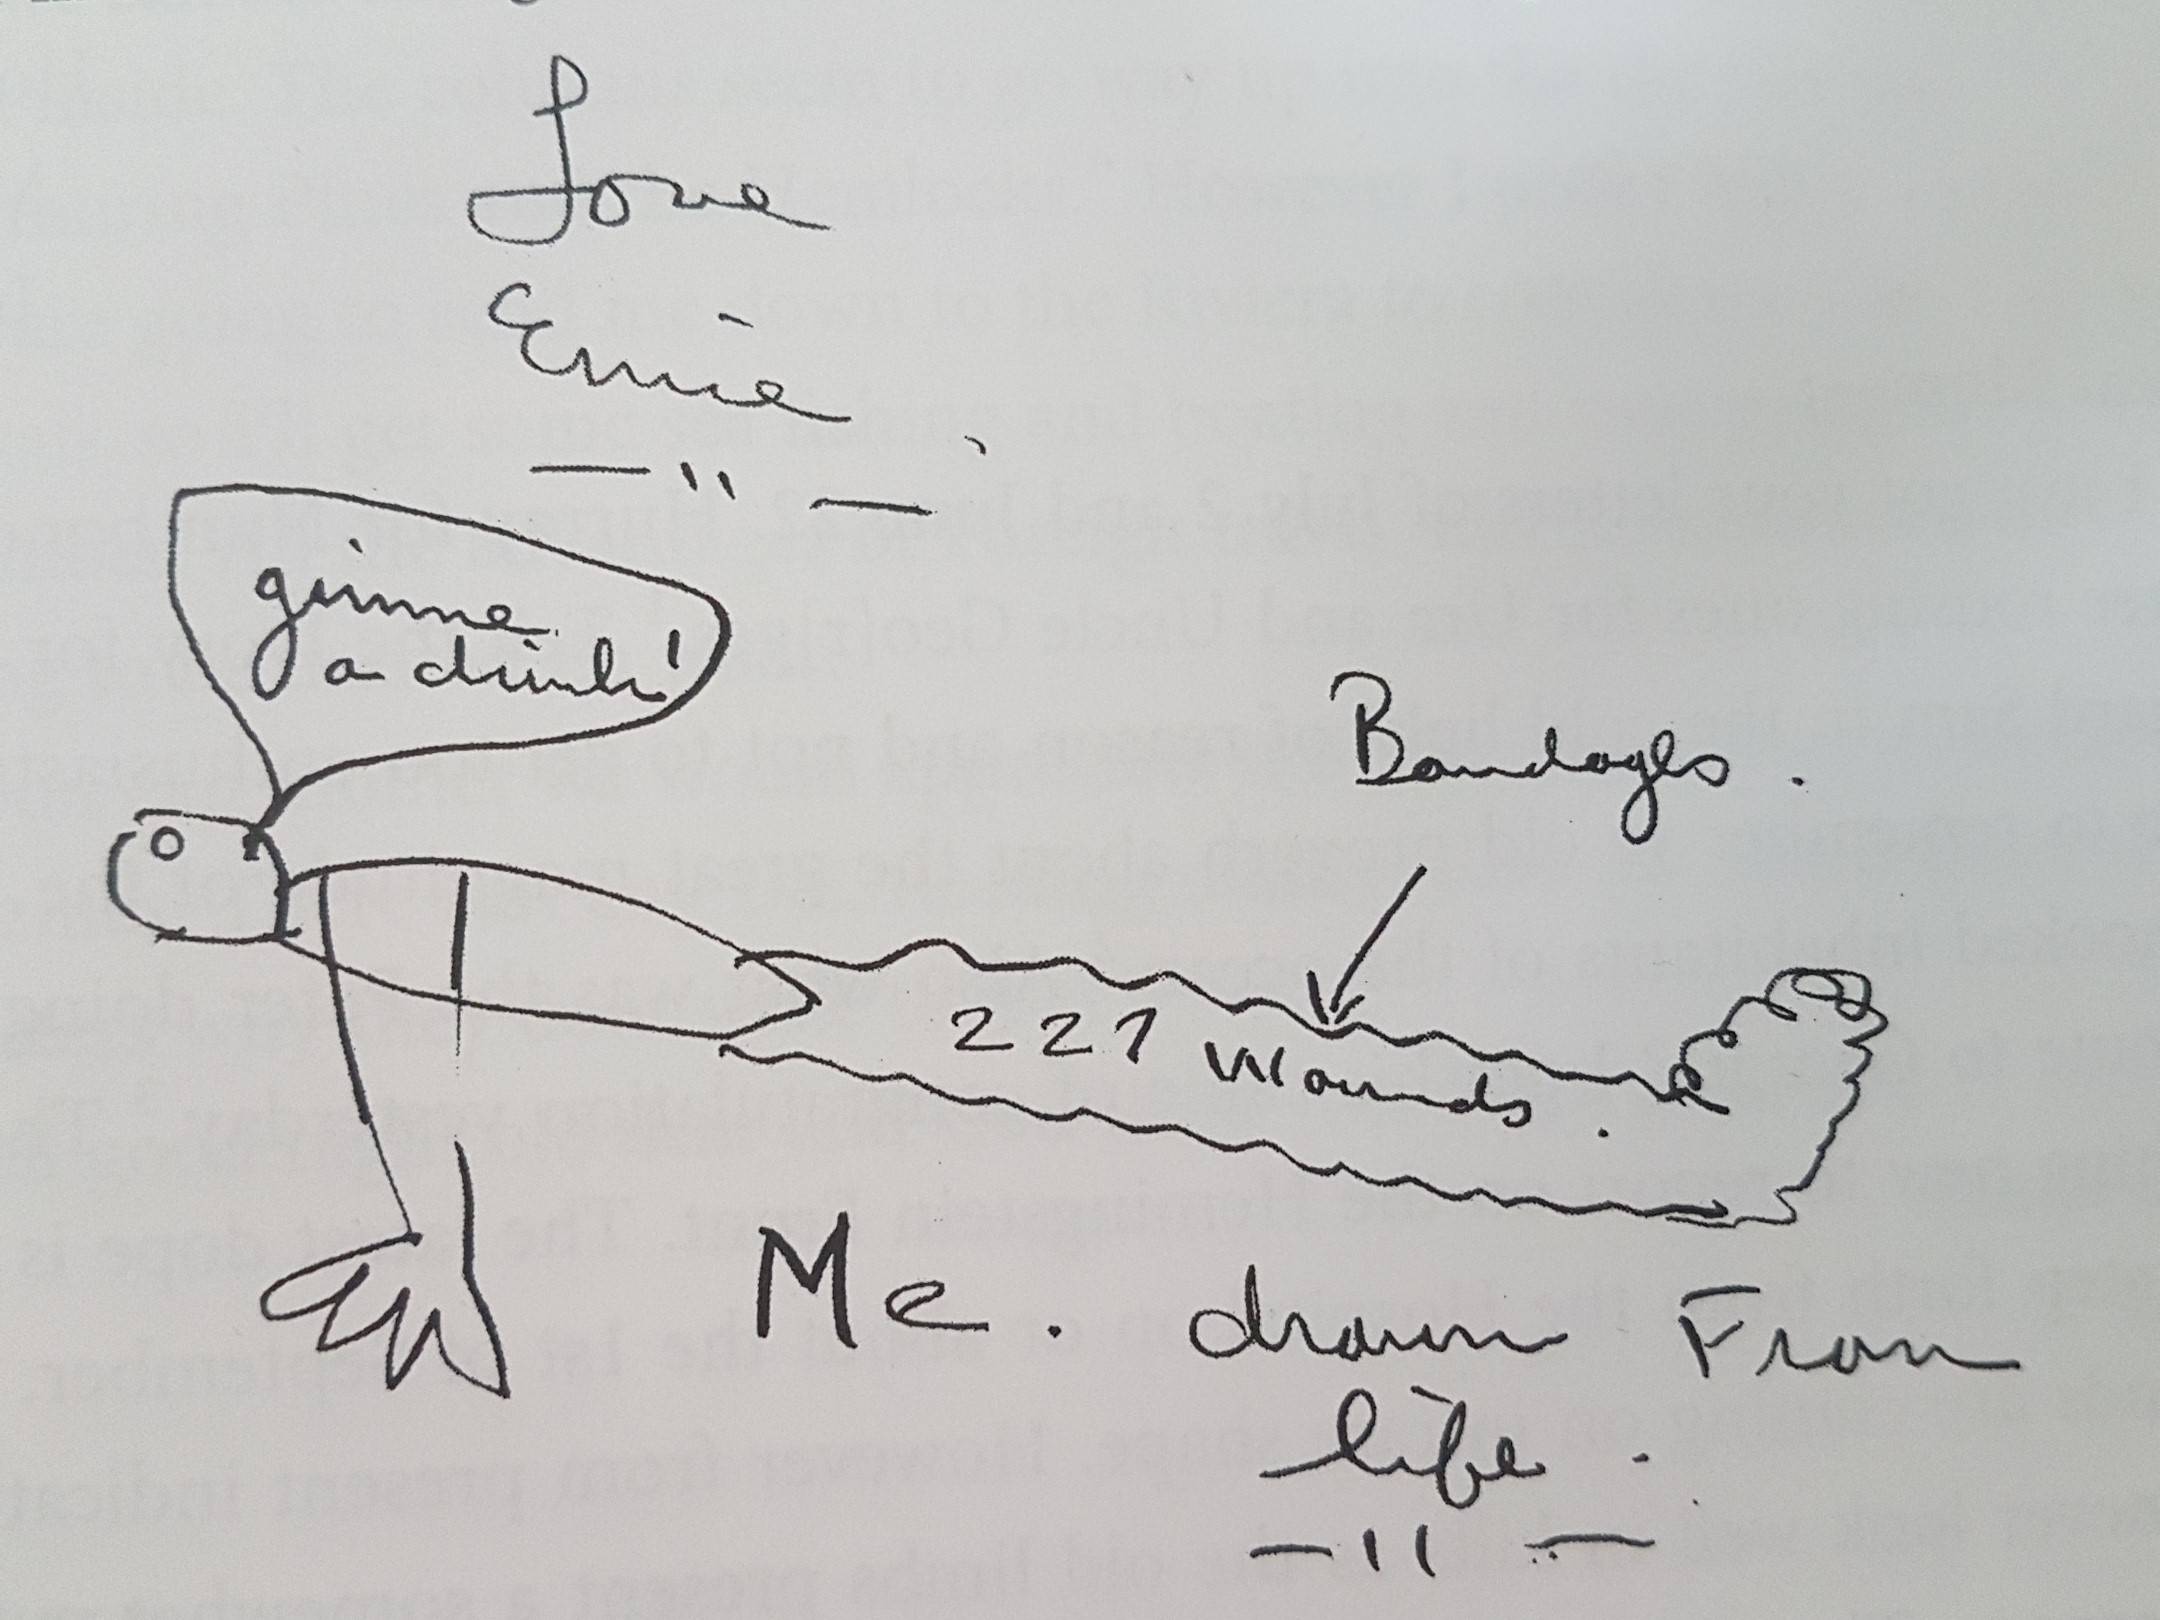 Love
Ernie.
— " —
gimme
a drink!
Bandages.
227 Wounds.
Me. drawn From
life.
— 11 —